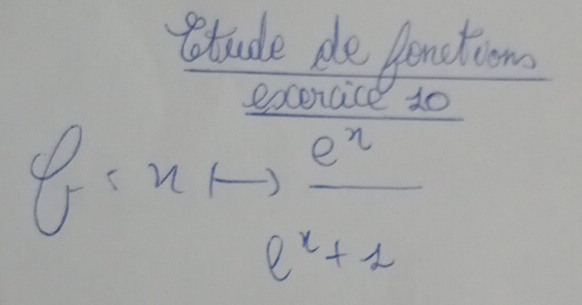 Etude de fonctions
exercice 10
f : x ↦ e^x
e^x + 1